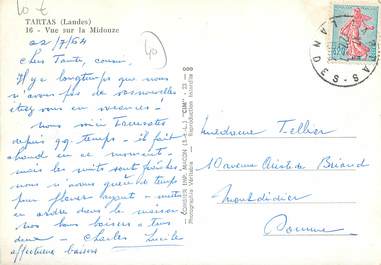 10 €
TARTAS (Landes)
16 - Vue sur la Midouze
22/7/64
40
Chers Tante, cousin,
Il y a longtemps que nous
n'avons pas de vos nouvelles
étiez vous en vacances?
nous voici Tarusates
depuis qq. temps - il fait
chaud en ce moment
mais les nuits sont fraîches
nous n'avons guère de temps
pour flâner ayant
en ordre dans la maison
nos bons baisers à tous
deux - Charles Lucile
affectueux baisers
COMBIER IMP. MACON (S.-&-L.) "CIM"
Photographie Véritable - Reproduction Interdite
TARTAS
LANDES
Madame Tellier
10 avenue Aristide Briand
Montdidier
Somme